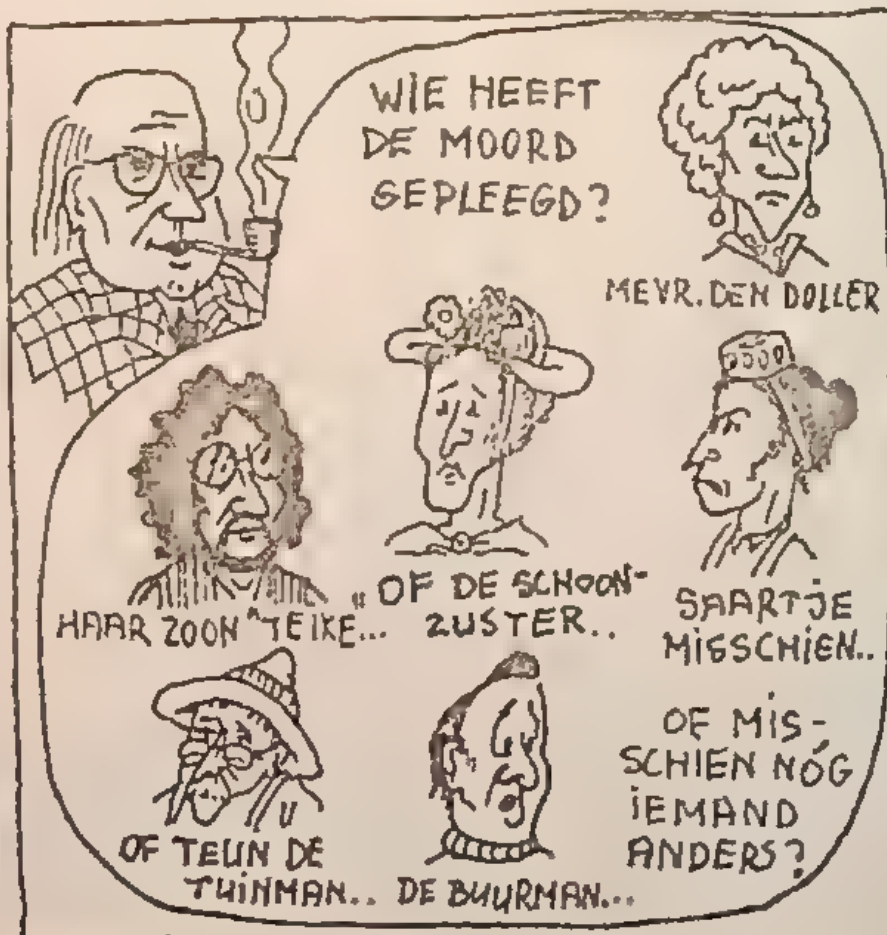 WIE HEEFT
DE MOORD
GEPLEEGD?
MEVR. DEN DOLLER
HAAR ZOON "TEIKE"...
OF DE SCHOON-
ZUSTER..
SAARTJE
MISSCHIEN..
OF TEUN DE
TUINMAN..
DE BUURMAN...
OF MIS-
SCHIEN NÓG
IEMAND
ANDERS?